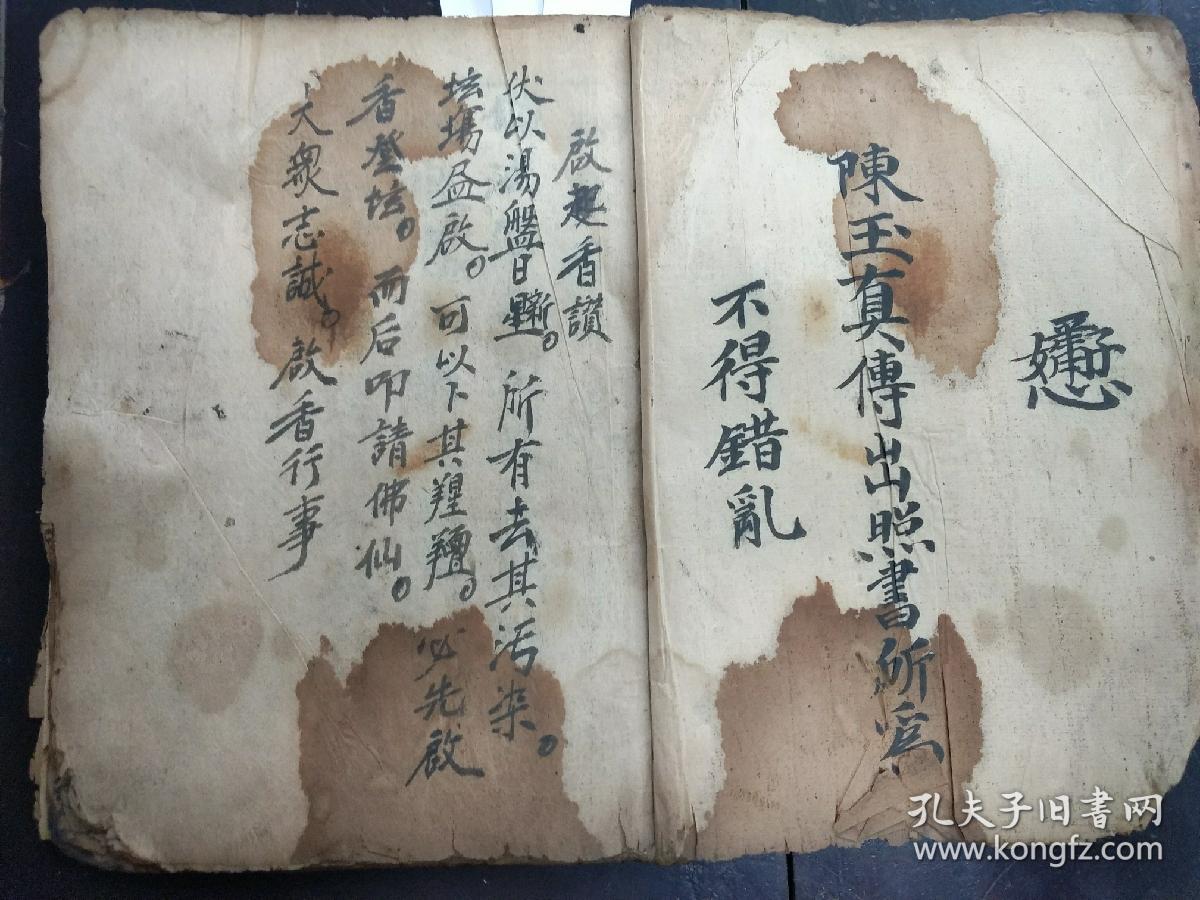 陳玉真傳出照書所為
不得錯亂
啟起香讚
伏以湯盤日新。所有去其污染。
坛場益啟。可以下其羶。必先啟
香登坛。而后叩請佛仙。
大衆志誠。啟香行事
孔夫子旧書网
www.kongfz.com